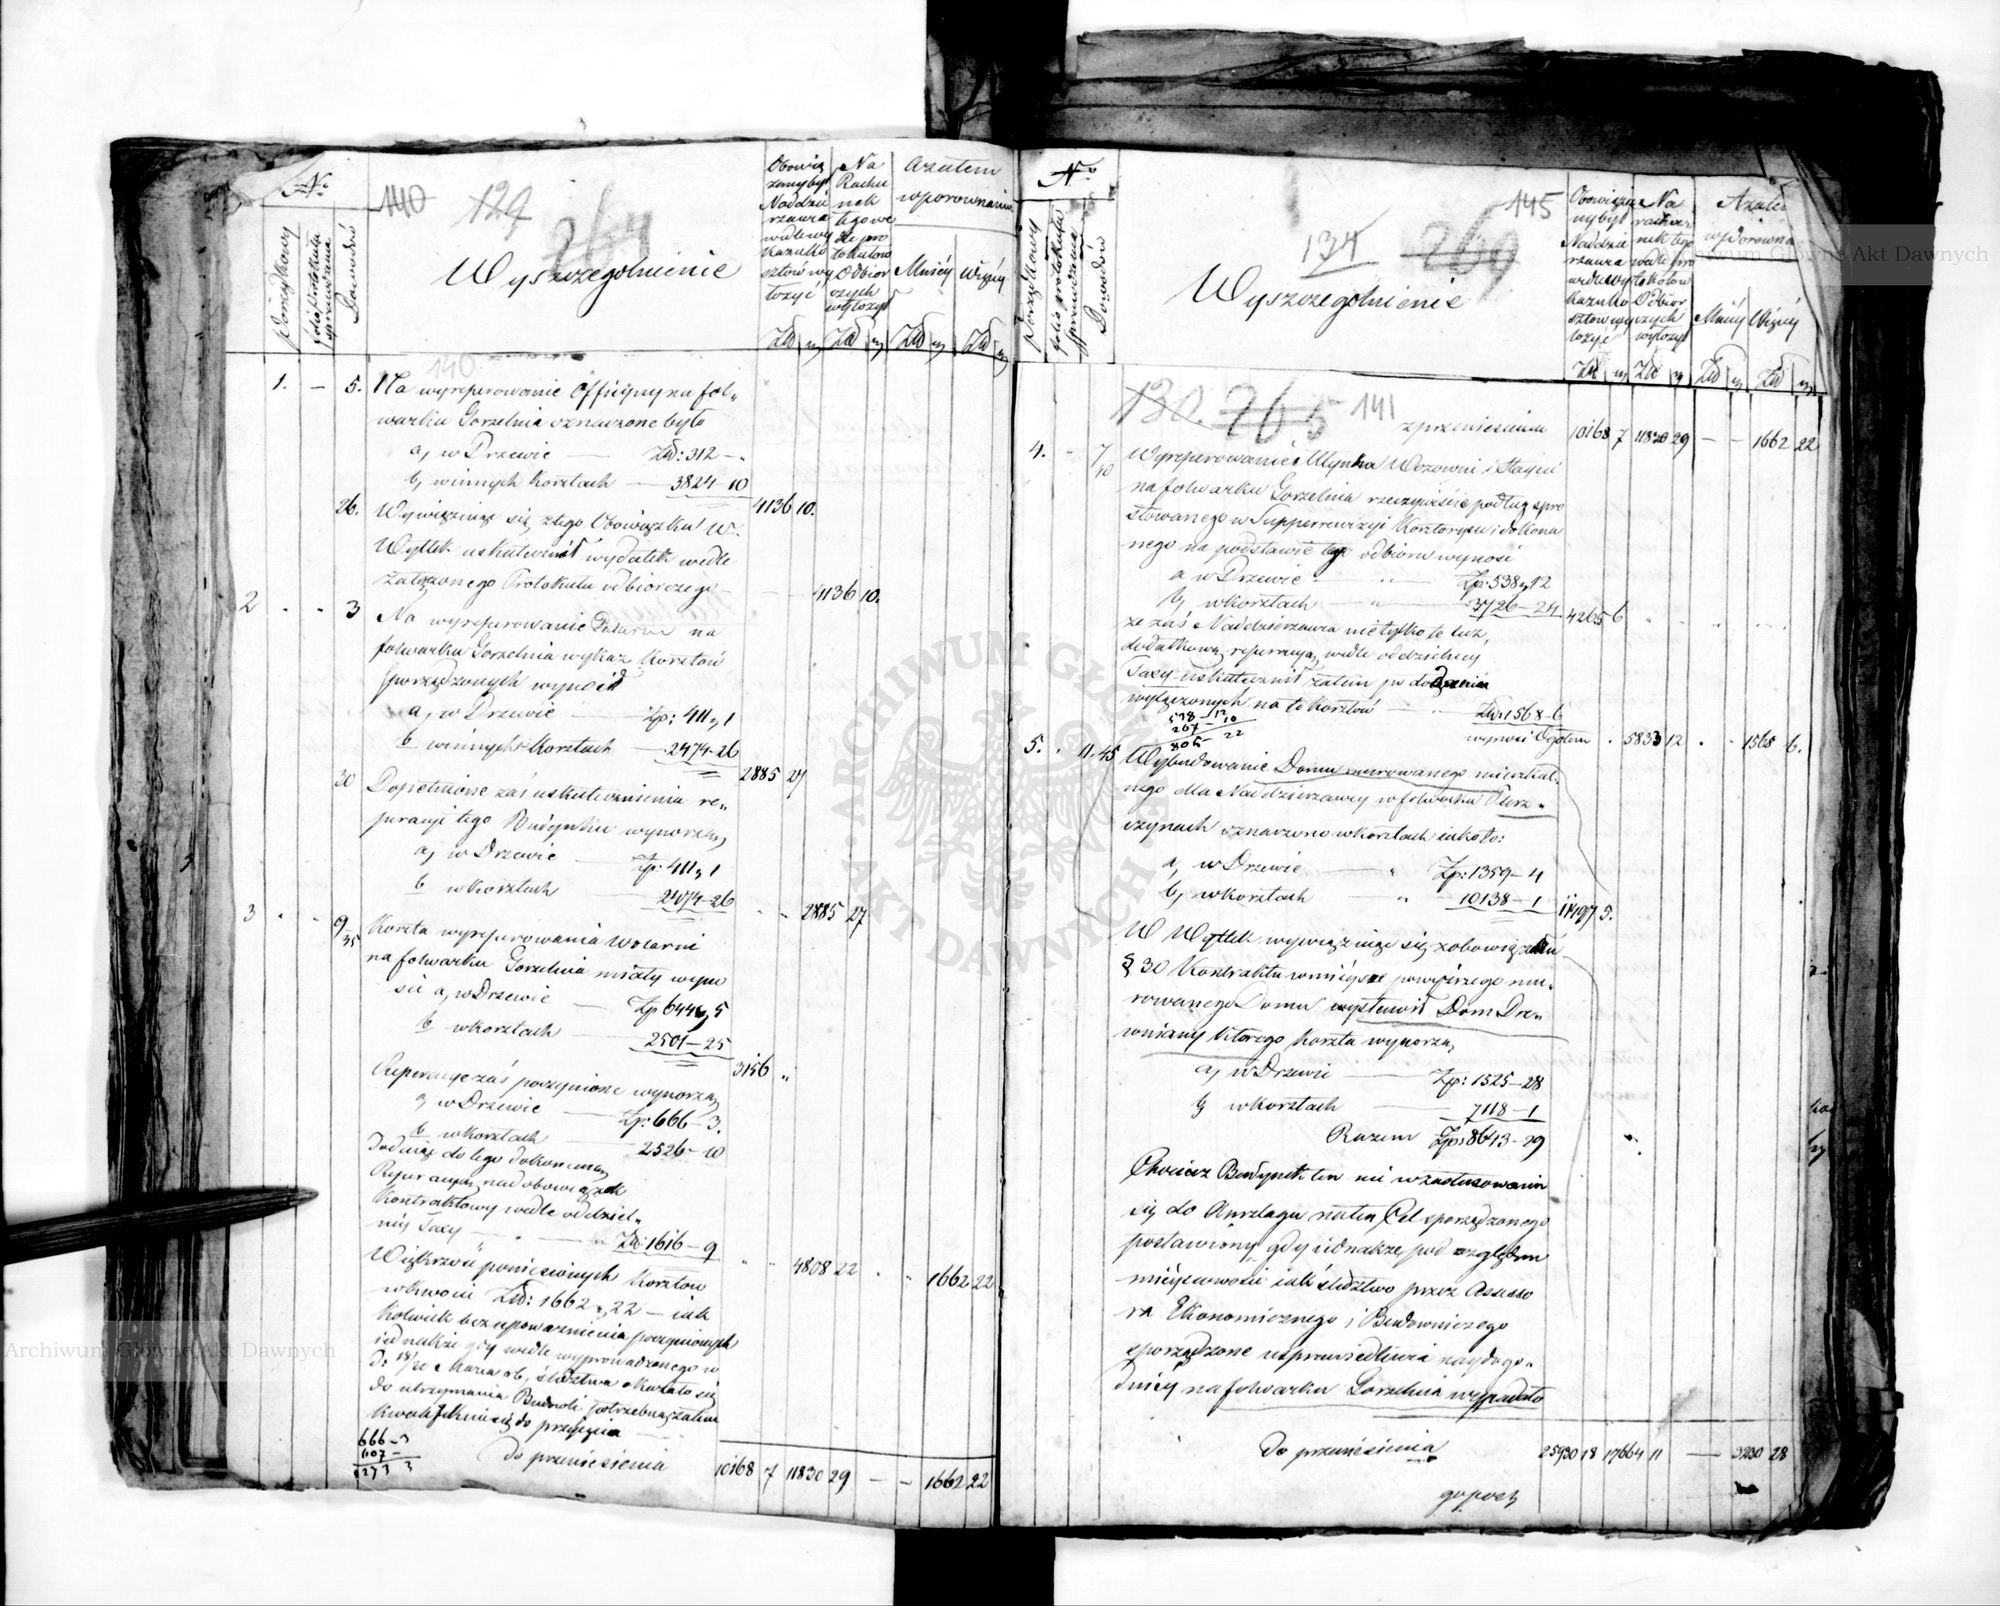 No
140 129 264
porządkowy
folio protokułu sprawdzenia
Dowodów
Wyszczegolnienie
Obowią
zany był
Naddzie
rzawca
wedle wy
kazu ko
sztów wy
łożyć
Na
Rachu
nek
tegowe
dle pro
tokułów
Odbior
czych
wyłożył
Azatem
wporownaniu
Mniéy
Więcéy
Złd gr Złd gr Złd gr Złd gr
140
1. – 5. Na wyreperowanie Officyny na fol„
warku Gorzelnia oznaczone było
a, w Drzewie — Złd: 312 – „
b, winnych Kosztach — 3824–10
4136 10.
26. Wywięzuiąc się ztego Obowiązku W.
Wyttek uskutecznił wydatek wedle
załączonego Protokułu odbiorczego
4136 10.
2 „ „ 3 Na wyreperowanie na
folwarku Gorzelnia wykaz Kosztów
sporządzonych wynosił
a, w Drzewie — Zp: 411 „ 1
b winnych Kosztach — 2474–26
2885 27
30 Dopełnione zaś uskutecznienia re„
peracyi tego Budynku wynoszą
a, w Drzewie — Zp: 411 „ 1
b w Kosztach — 2474–26
2885 27
3 „ „ 9/35 Koszta wyreperowania Wolarni
na folwarku Gorzelnia miały wyno
sić a, w Drzewie — Zp 644 „ 5
b w Kosztach — 2501–25
3156 „
Reperacye zaś poczynione wynoszą
a, w Drzewie — Zp: 666–3.
b w Kosztach — 2526–10
Dodaiąc do tego dokonaną
Reperacyą nad obowiązek
Kontraktowy wedle oddziel„
néy Taxy — Złd: 1616–9
4808 22 „ „ 1662 22
Większość poniesionych Kosztow
wkwocie Złd: 1662 „ 22 – iak
kolwiek bez upoważnienia poczynionych
iednakże gdy wedle wyprowadzonego w
śledztwa okazało się
do utrzymania Budowli potrzebną zatem
kwalifikuie się do przyięcia
666–3
607–
1273 3
Do przeniesienia 10168 7 11830 29 – – 1662 22
No
145
134 269
porządkowy
folio protokułu sprawdzenia
Dowodów
Wyszczegolnienie
Obowiąza
ny był
Naddzie
rzawca
wedle wy
kazu ko
sztów wy
łożyć
Na
rachu
nek tego
wedle pro
tokołów
Odbior
czych
wyłożył
Azatem
wporowna
Mniéy Więcéy
Złd gr Złd gr Złd gr Złd gr
130. 265 141
zprzeniesienia 10168 7 11830 29 – – 1662 22
4. – 7/40 Wyreperowanie Młynka Wozowni i Stayni
na folwarku Gorzelnia rzeczywiście podług spro
stowanego w Supperrewizyi Kosztorysu i dokona
nego na podstawie tego odbioru wynosi
a w Drzewie — Zp: 538 „ 12
b, w Kosztach — 3726–24
4265 6
ze zaś Naddzierzawca nie tylko te lecz
dodatkową reperacyą wedle oddzielnéy
Taxy uskutecznił zatem po dodaniu
wyłączonych na to Kosztów — Złd: 1568–6
538–12
267–10
805 22
wynosi Ogółem „ 5833 12 „ – 1568 6.
5. „ 11.45 Wybudowanie Domu murowanego mieszkal„
nego dla Naddzierzawcy w folwarku
oznaczono w Kosztach iakoto:
a, w Drzewie — Zp: 1359–4
b, w Kosztach — 10138–1
11497 5.
W Wyttek wywięzuiąc się zobowiązku
§ 30 Kontraktu wmieysce powyższego mu„
rowanego Domu wystawił Dom Dre„
wniany ktorego Koszta wynoszą
a, w Drzewie — Zp: 1525–28
b, w Kosztach — 7118–1
Razem Zp: 8643–29
Chociaz Budynek ten nie wzastosowaniu
się do Anszlagu na ten Cel sporządzonego
postawiony, gdy iednakże, pod względem
mieyscowości iak śledztwo przez Assesso
ra Ekonomicznego i Budowniczego
sporządzone usprawiedliwia naydogo„
dniéy na folwarku Gorzelnia wypadało
Do przeniesienia 25930 18 17664 11 — 3230 28
go poz
ARCHIWUM GŁÓWNE AKT DAWNYCH
Archiwum Główne Akt Dawnych
Archiwum Główne Akt Dawnych